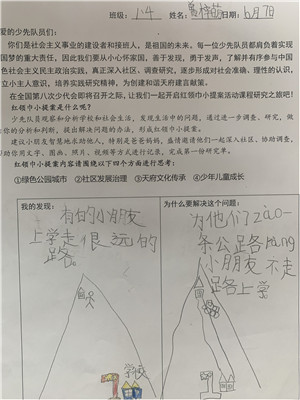 班级: 1.4 姓名: 日期: 6月7日
爱的少先队员们:
你们是社会主义事业的建设者和接班人,是祖国的未来。每一位少先队员都肩负着实现
国梦的重大责任,因此我们要从小心怀家国、善于发现,勇于发声,了解并有序参与中国
色社会主义民主政治实践,真正深入社区、调查研究,逐步形成对社会准确、理性的认识,
立小主人意识,培养实践研究精神,为创建和谐天府建言献策。
在全国第八次少代会即将召开之际,让我们一起开启红领巾小提案活动课程研究之旅吧!
红领巾小提案是什么呢?
少先队员观察和分析学校和社会生活,发现生活中的问题,通过进一步调查、研究,做
你的分析和判断,提出解决问题的办法,形成红领巾小提案。
建议小朋友邀请智慧地各助他人,特别是爸爸妈妈,
助你用文字、图画、照片、视频等方式进行记录,完成第一份研究单。
红领巾小提案内容请围绕以下四个方面进行思考:
①绿色公园城市 ②社区发展治理 ③天府文化传承 ④少年儿童成长
我的发现:
有的小朋友
上学走很远的
路。
学校
为什么要解决这个问题:
为他们了zào
一条公路
小朋友不走
路上学。